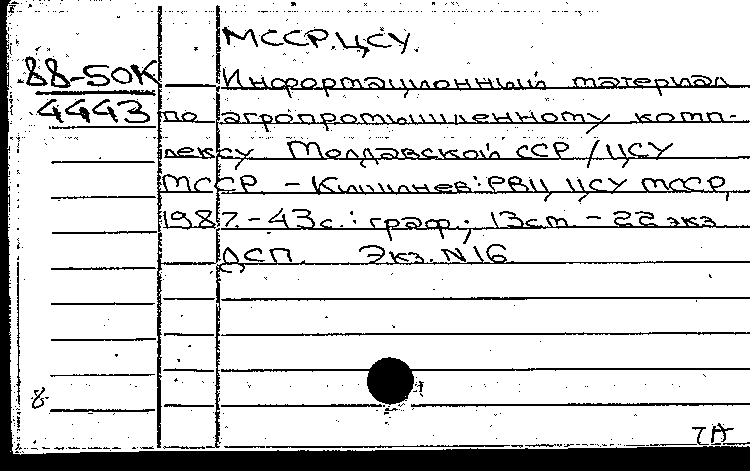 МССР. ЦСУ.
88-50К
4443
Информационный материал
по агропромышленному комп-
лексу Молдавской ССР / ЦСУ
МССР. - Кишинев: РВЦ ЦСУ МССР,
1987. - 43 с.: граф.; 13 ст. - 22 экз.
ДСП. Экз. N 16
8